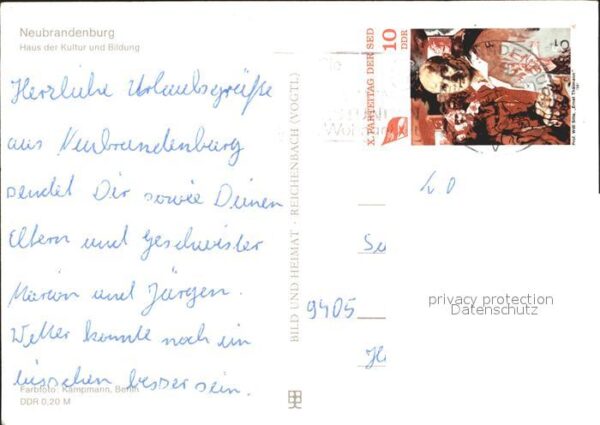 Neubrandenburg
Haus der Kultur und Bildung
Herzliche Urlaubsgrüße
aus Neubrandenburg
sendet Dir sowie Deinen
Eltern und Geschwister
Marion und Jürgen.
Wetter könnte noch ein
bisschen besser sein.
Farbfoto: Kampmann, Berlin
DDR 0,20 M
BILD UND HEIMAT · REICHENBACH (VOGTL)
X. PARTEITAG DER SED
10
DDR
9405
privacy protection
Datenschutz